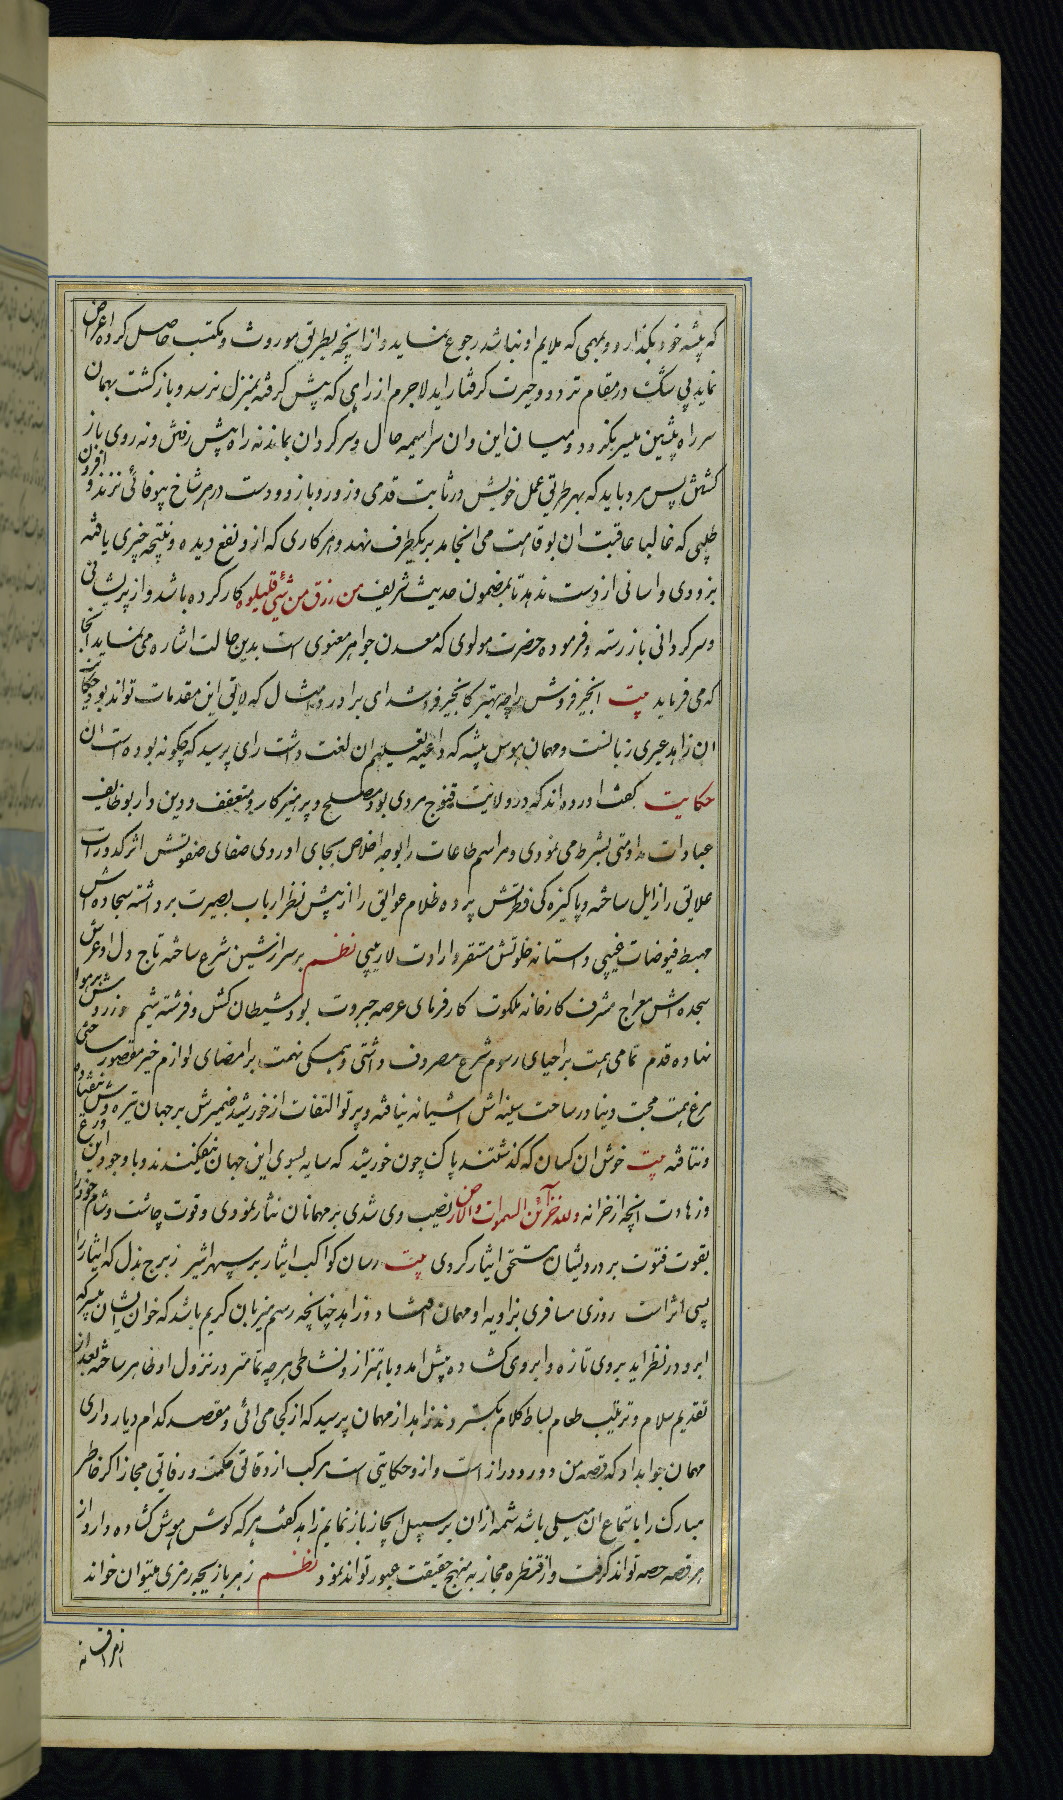 که پیشه خود بگذارد و بمهمی که ملایم او نباشد رجوع نماید و از آنچه بطریق موروث و مکتسب حاصل کرده اعراض
نماید بی شک در مقام تردد و حیرت گرفتار اید لاجرم از راهی که پیش گرفته بمنزل نرسد و بازگشت بهمان
سر راه پیشین میسر نگردد و میان این و ان سراسیمه حال و سرگردان بماند نه راه پیش رفتن و نه روی باز
کشتن پس مرد باید که بهر طریق عمل خویش در ثابت قدمی و زور و بازو و دست در هر شاخ بیوفائی نزند و افزون
طلبی که غالبا عاقبت ان بوقامت می انجامد بر یکطرف نهد و هر کاری که ازو نفع دیده و نتیجه خیری یافته
بزودی و اسانی از دست ندهد تا بمضمون حدیث شریف من رزق من شئ فلیلزمه کار کرده باشد و از پریشانی
و سرگردانی باز رسته و فرموده حضرت مولوی که معدن جواهر معنوی است بدین حالت اشاره می نماید انجا
که می فرماید بیت انجیر فروش را چه بهتر کانجیر فروشد ای برادر و مثال که لایق این مقدمات تواند بود حکایت
ان زاهد عبری زبانست و مهمان هوس پیشه که داعیه تعلیم ان لغت داشت رای پرسید که چگونه بوده است ان
حکایت گفت اورده اند که در ولایت قنوج مردی بود مصلح و پرهیزکار و متعفف و دین دار بوظایف
عبادات مداومتی بشرط می نمودی و مراسم طاعات را بوجه اخلاص بجای اوردی صفای صفوتش اثر کدورات
علایق را زایل ساخته و پاکیزه کی فطرتش پرده ظلام عوایق را از پیش نظر ارباب بصیرت برداشته سجاده اش
مهبط فیوضات غیبی و استانه خلوتش مستقر واردات لاریبی نظم بر سر از شین شرع ساخته تاج دل او عرش
سجده اش معراج مشرف کارخانه ملکوت کارفرمای عرصه جبروت بود شیطان کش و فرشته شیم زده بر هوا
نهاده قدم تمامی همت بر احیای رسوم شرع مصروف داشتی و همگی نهمت بر امضای لوازم خیر مقصور ساختی
مرغ همت محبت دنیا در ساحت سینه اش اشیانه نیافته و پرتو التفات از خورشید ضمیرش بر جهان تیره وش نیفتاده
و نتافته بیت خوش ان کسان که گذشتند پاک چون خورشید که سایه بسوی این جهان نیفکندند و با وجود این ورع
و زهادت انچه از خزانه و لله خزائن السموات والارض نصیب وی شدی بر مهمانان نثار نمودی و قوت چاشت و شام خود را
بقوت فتوت بر درویشان مستحق ایثار کردی بیت رسان کواکب ایثار بر سپهر اثیر ز برج بذل که ایثار را
بسی اثر است روزی مسافری بزاویه او مهمان افتاد و زاهد چنانچه رسم میزبان کریم باشد که خوان ایشان بی سرکه
ابرو در نظر اید بروی تازه و ابروی کشاده پیش امد و باهتزاز و نشاطی هر چه تمامتر در نزول او ظاهر ساخته بعد از
تقدیم سلام و ترتیب طعام بساط کلام بگستردند زاهد از مهمان پرسید که از کجا می ائی و مقصد کدام دیار داری
مهمان جواب داد که قصه من دور و دراز است و از و حکایتی است مرکب از دقائق حکمت و رقائق مجاز اگر خاطر
مبارک را باستماع ان میلی باشد شمه از ان بر سبیل ایجاز باز نمایم زاهد گفت هر که گوش هوش کشاده دارد از
هر قصه حصه تواند گرفت و از قنطره مجاز به منهج حقیقت عبور تواند نمود نظم ز هر بازیچه رمزی میتوان خواند
ز هر افسانه